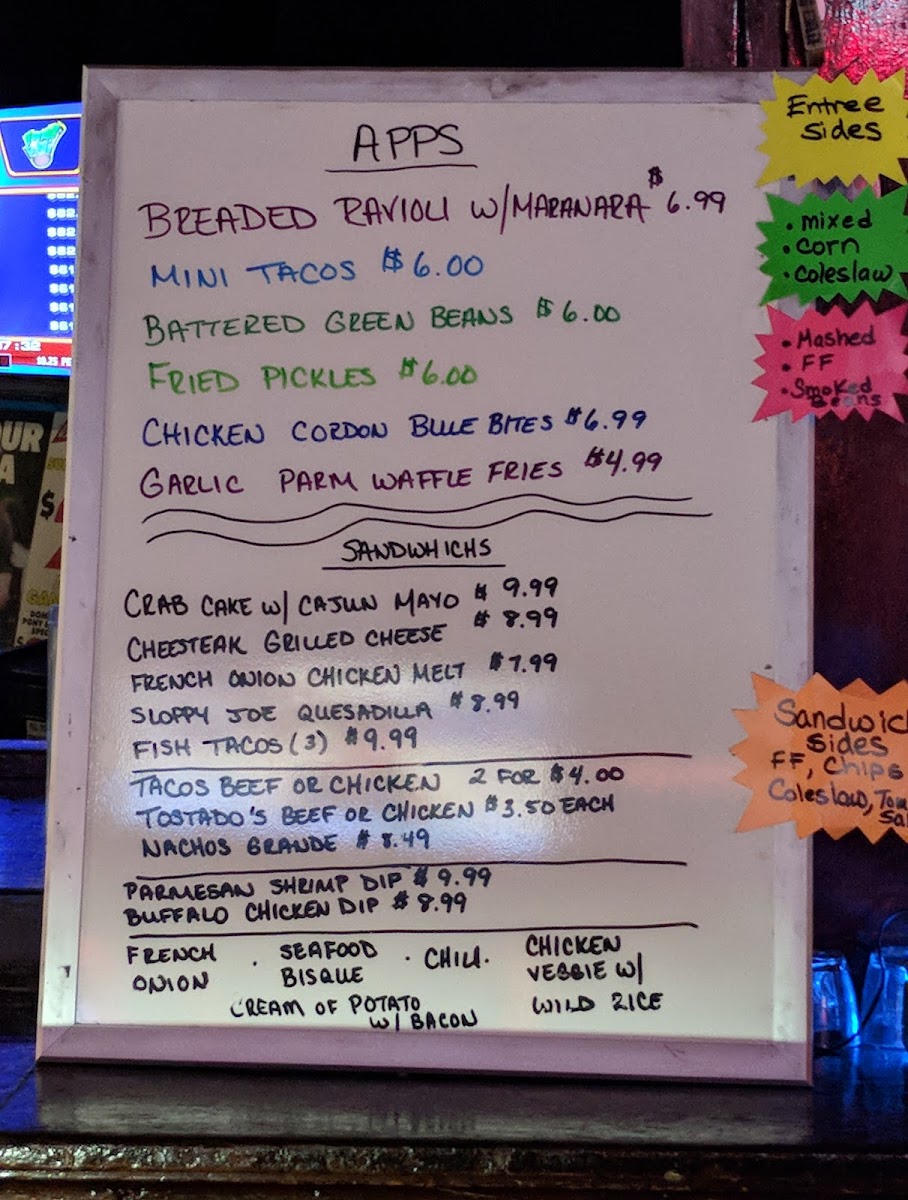 APPS
BREADED RAVIOLI W/MARANARA $6.99
MINI TACOS $6.00
BATTERED GREEN BEANS $6.00
FRIED PICKLES $6.00
CHICKEN CORDON BLUE BITES $6.99
GARLIC PARM WAFFLE FRIES $4.99
SANDWHICHS
CRAB CAKE W/ CAJUN MAYO $9.99
CHEESTEAK GRILLED CHEESE $8.99
FRENCH ONION CHICKEN MELT $7.99
SLOPPY JOE QUESADILLA $8.99
FISH TACOS (3) $9.99
TACOS BEEF OR CHICKEN 2 FOR $4.00
TOSTADO'S BEEF OR CHICKEN $3.50 EACH
NACHOS GRANDE $8.49
PARMESAN SHRIMP DIP $9.99
BUFFALO CHICKEN DIP $8.99
FRENCH ONION
· SEAFOOD BISQUE
· CHILI.
CHICKEN VEGGIE W/ WILD RICE
CREAM OF POTATO
W/ BACON
Entree
Sides
• mixed
• Corn
• Coleslaw
• Mashed
• FF
• Smoked
Beans
Sandwic
Sides
FF, Chips
Coleslaw, Tom
Sa